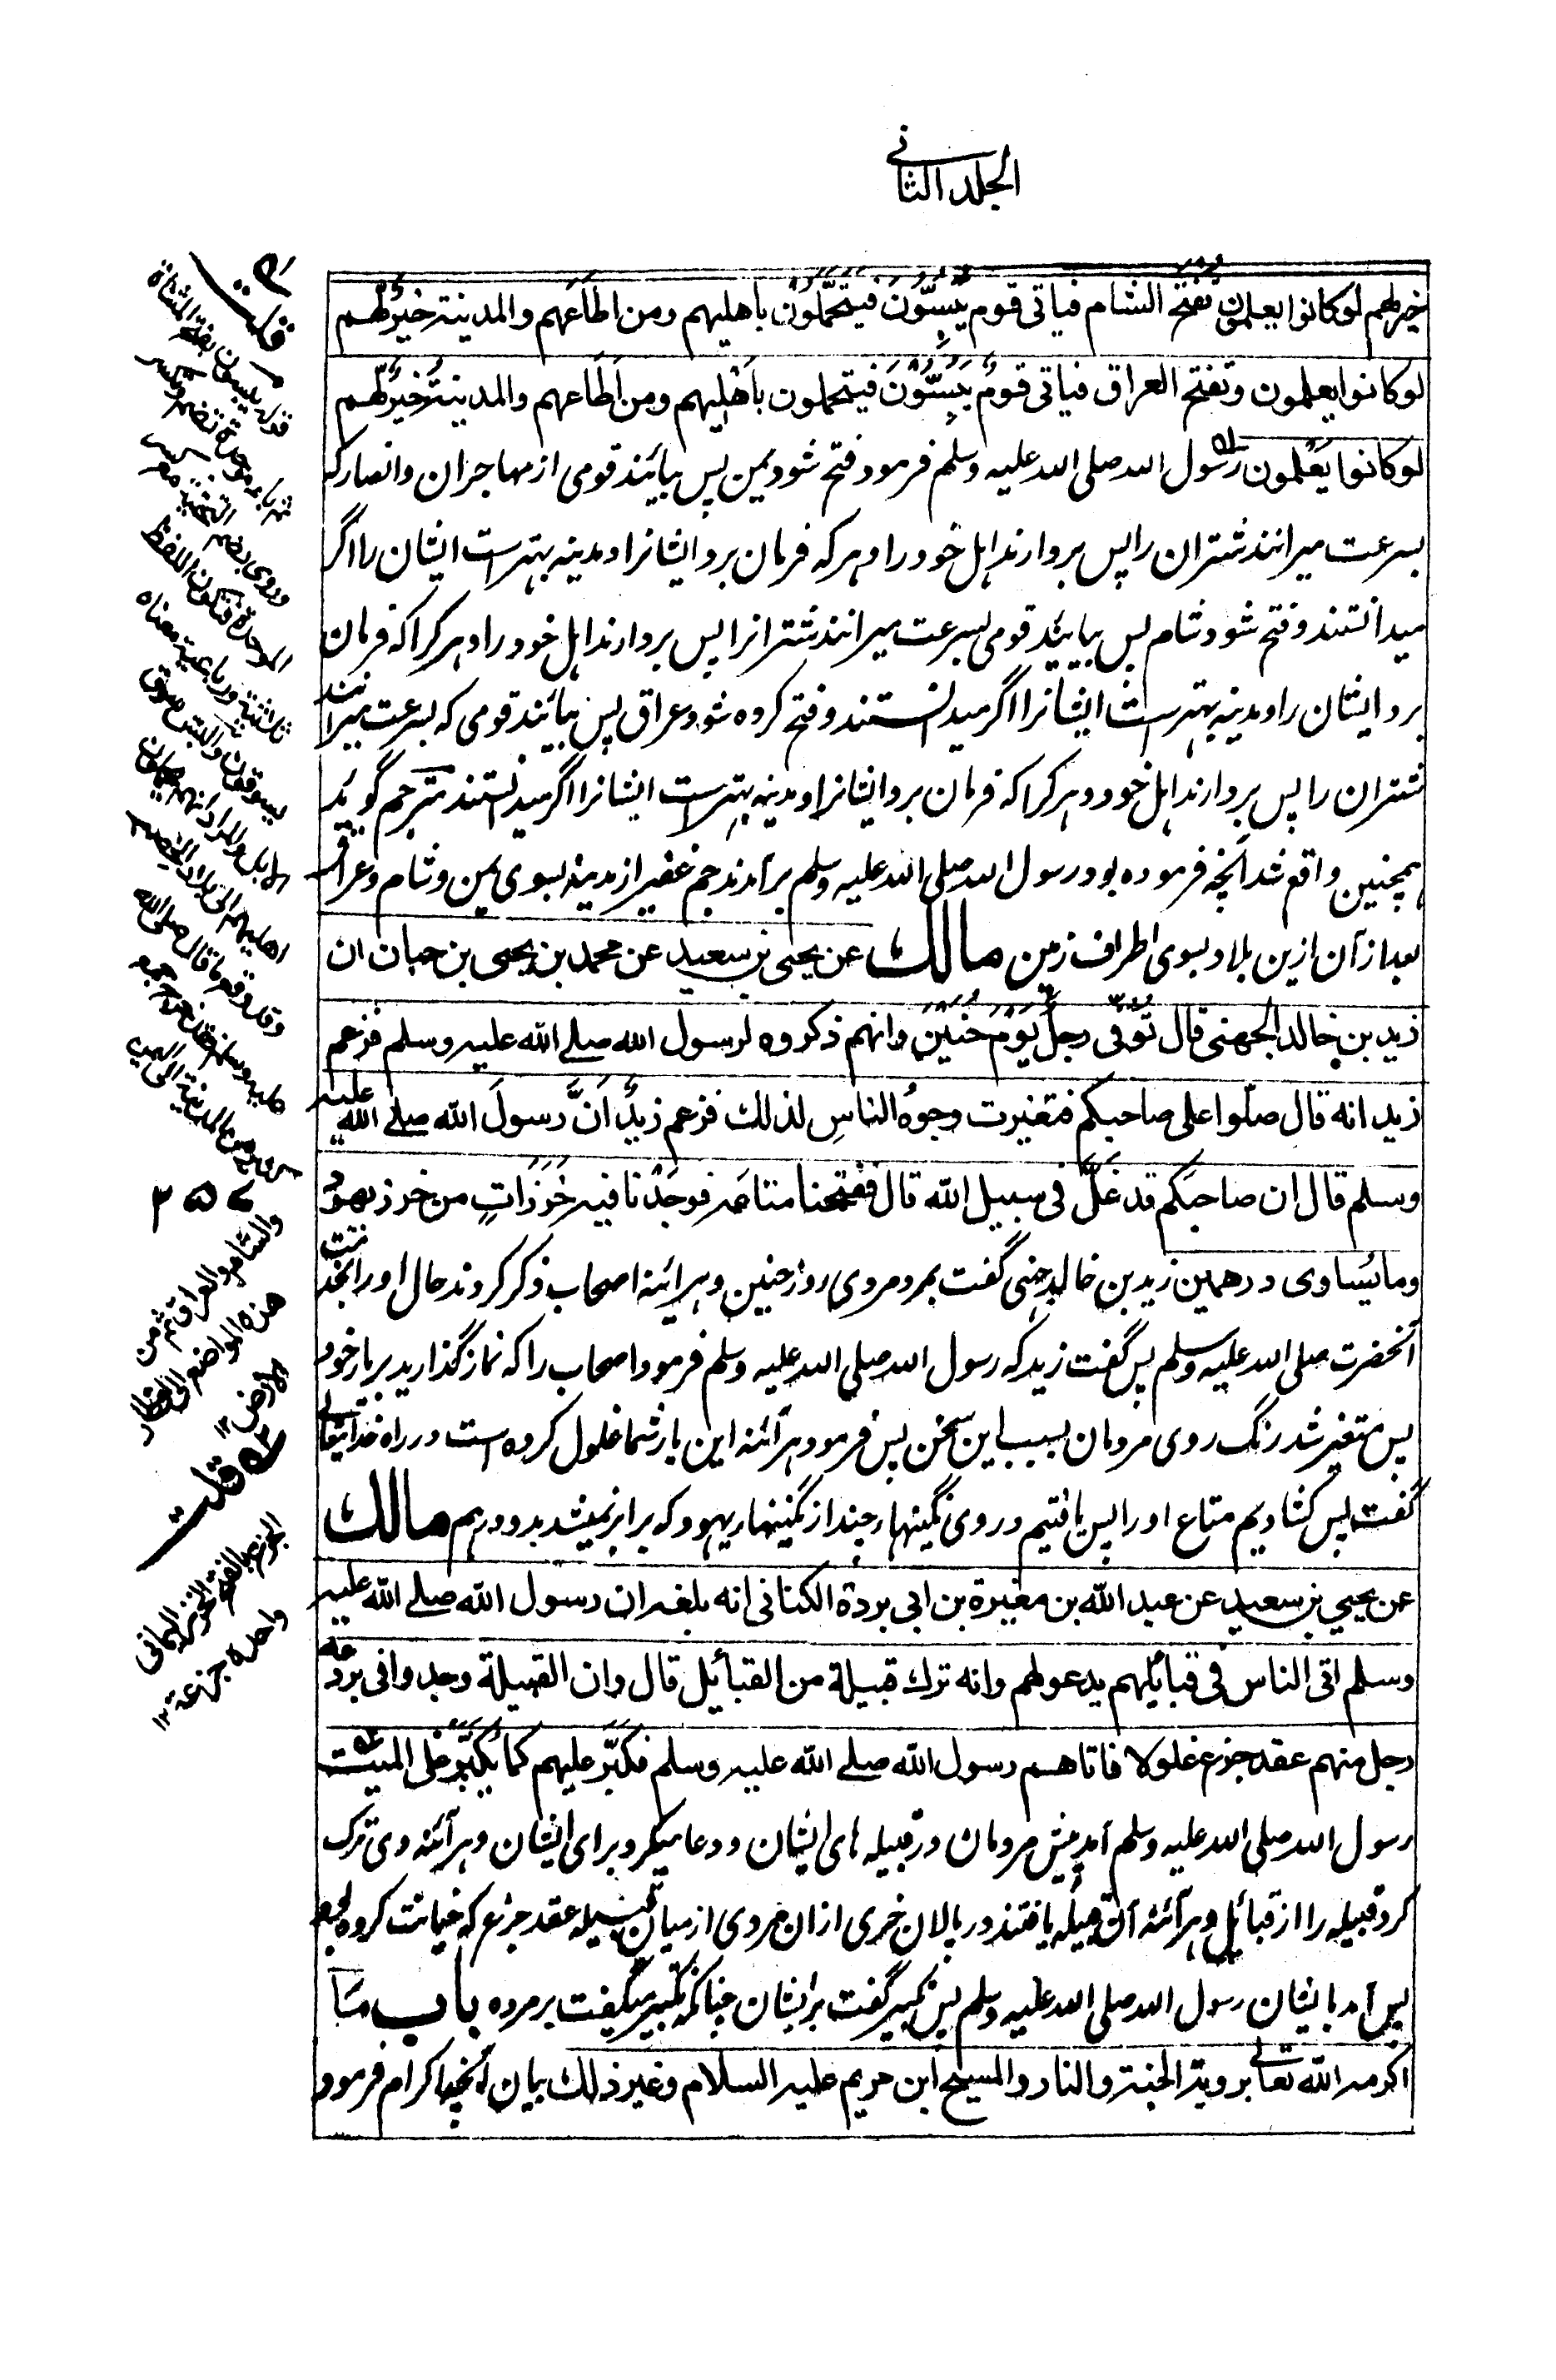 الجلد الثانی
خیر لهم لو کانوا یعلمون تفتح الشام فیاتی قوم یَبُسُّونَ فیتحمَّلُوْن باهلیهم ومن اطاعَهم والمدینة خیرٌ لهم
لو کانوا یعلمون وتفتح العراق فیاتی قومٌ یَبُسُّوْنَ فیتحملون باَهْلِیهم ومن اَطَاعهم والمدینةُ خیرٌ لهم
لو کانوا یَعْلمون رسول الله صلی الله علیه وسلم فرمود فتح شود یمن پس بیایند قومی از مهاجران وانصار که
بسرعت میرانند شتران را پس بردارند اهل خود را و هر که فرمان برد ایشانرا و مدینه بهترست ایشان را اگر
میدانستند و فتح شود شام پس بیایند قومی بسرعت میرانند شترانرا پس بردارند اهل خود را و هر کرا که فرمان
برد ایشان را و مدینه بهترست ایشانرا اگر میدانستند و فتح کرده شود عراق پس بیایند قومی که بسرعت میرانند
شتران را پس بردارند اهل خود و هر کرا که فرمان برد ایشانرا و مدینه بهترست ایشانرا اگر میدانستند مترجم گوید
همچنین واقع شد آنچه فرموده بود رسول الله صلی الله علیه وسلم برآمدند جم غفیر از مدینه بسوی یمن و شام و عراق
بعد از آن ازین بلاد بسوی اطراف زمین مالك عن یحیی بن سعید عن محمد بن یحیی بن حبان ان
زید بن خالد الجهنی قال تُوُفّی رجلٌ یَوْمَ حُنَیْنٍ وانهم ذکروه لرسول الله صلے الله علیه وسلم فزعم
زید انه قال صلّوا علی صاحبکم فتغیرت وجوهُ الناسِ لذلك فزعم زیدٌ اَنَّ رسولَ الله صلے الله علیه
وسلم قال ان صاحبَکم قد غَلَّ فی سبیل الله قال ففتحنا متاعَه فوجَدْنا فیه خَرَزَاتٍ من خرز یهودَ
وما تُساوی درهمین زید بن خالد جهنی گفت بمرد مردی روز حنین و هرآئینه اصحاب ذکر کردند حال او را بخدمت
آنحضرت صلی الله علیه وسلم پس گفت زید که رسول الله صلی الله علیه وسلم فرمود اصحاب را که نماز گذارید بر یار خود
پس متغیر شد رنگ روی مردمان بسبب این سخن پس فرمود هرآئنه این یار شما غلول کرده است در راه خدایتعالی
گفت پس کشادیم متاع او را پس یافتیم در وی نگینهاء چند از نگینهاء یهود که برابر نمیشد بدو درهم مالك
عن یحیی بن سعید عن عبد الله بن مغیرة بن ابی بردة الکنانی انه بلغه ان رسول الله صلے الله علیه
وسلم اتی الناس فی قبائلهم یدعو لهم وانه ترك قبیلة من القبائل قال وان القبیلة وجدوا فی بردعة
رجل منهم عقد جزع غلولا فاتاهم رسول الله صلے الله علیه وسلم فکَبَّر علیهم کما یُکَبَّرُ علی المیت
رسول الله صلی الله علیه وسلم آمد پیش مردمان در قبیله های ایشان و دعا میکرد برای ایشان و هرآئنه وی ترک
کرد قبیله را از قبائل و هرآئنه آن قبیله یافتند در پالان خری از ان مردی از میان قبیله عقد جزع که خیانت کرده بود
پس آمد بایشان رسول الله صلی الله علیه وسلم پس تکبیر گفت بر ایشان چنانکه تکبیر میگفت بر مرده باب ما
اکرمه الله تعالی برویة الجنة والنار والمسیح ابن مریم علیه السلام وغیر ذلك بیان آنچه اکرام فرمود
قلت
قوله یبسون بفتح المثناة
ثم باء موحدة تضم وتکسر
وروی بضم التحتیة مع کسر
الموحدة فتکون اللفظ
ثلاثیة ورباعیة معناه
یسوقون والبس سوق
الابل والمراد انهم یحملون
اهلیهم الی بلاد الخصب
وقد وقع ما قال صلی الله
علیه وسلم فقد خرج جمع
کثیر من المدینة الی الیمن
والشام والعراق ثم من
هذه المواضع الی اقطار
الارض ۱۲
قلت
الجزع بالفتح الخرز الیمانی
واحده جزعة ۱۲